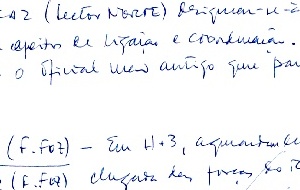 (Sector NORTE) designou-se-á
efeitos de ligação e coordenação.
o oficial mais antigo que par
(F. FOZ) - Em H+3, aguardando
(F. FOZ) chegada das forças do